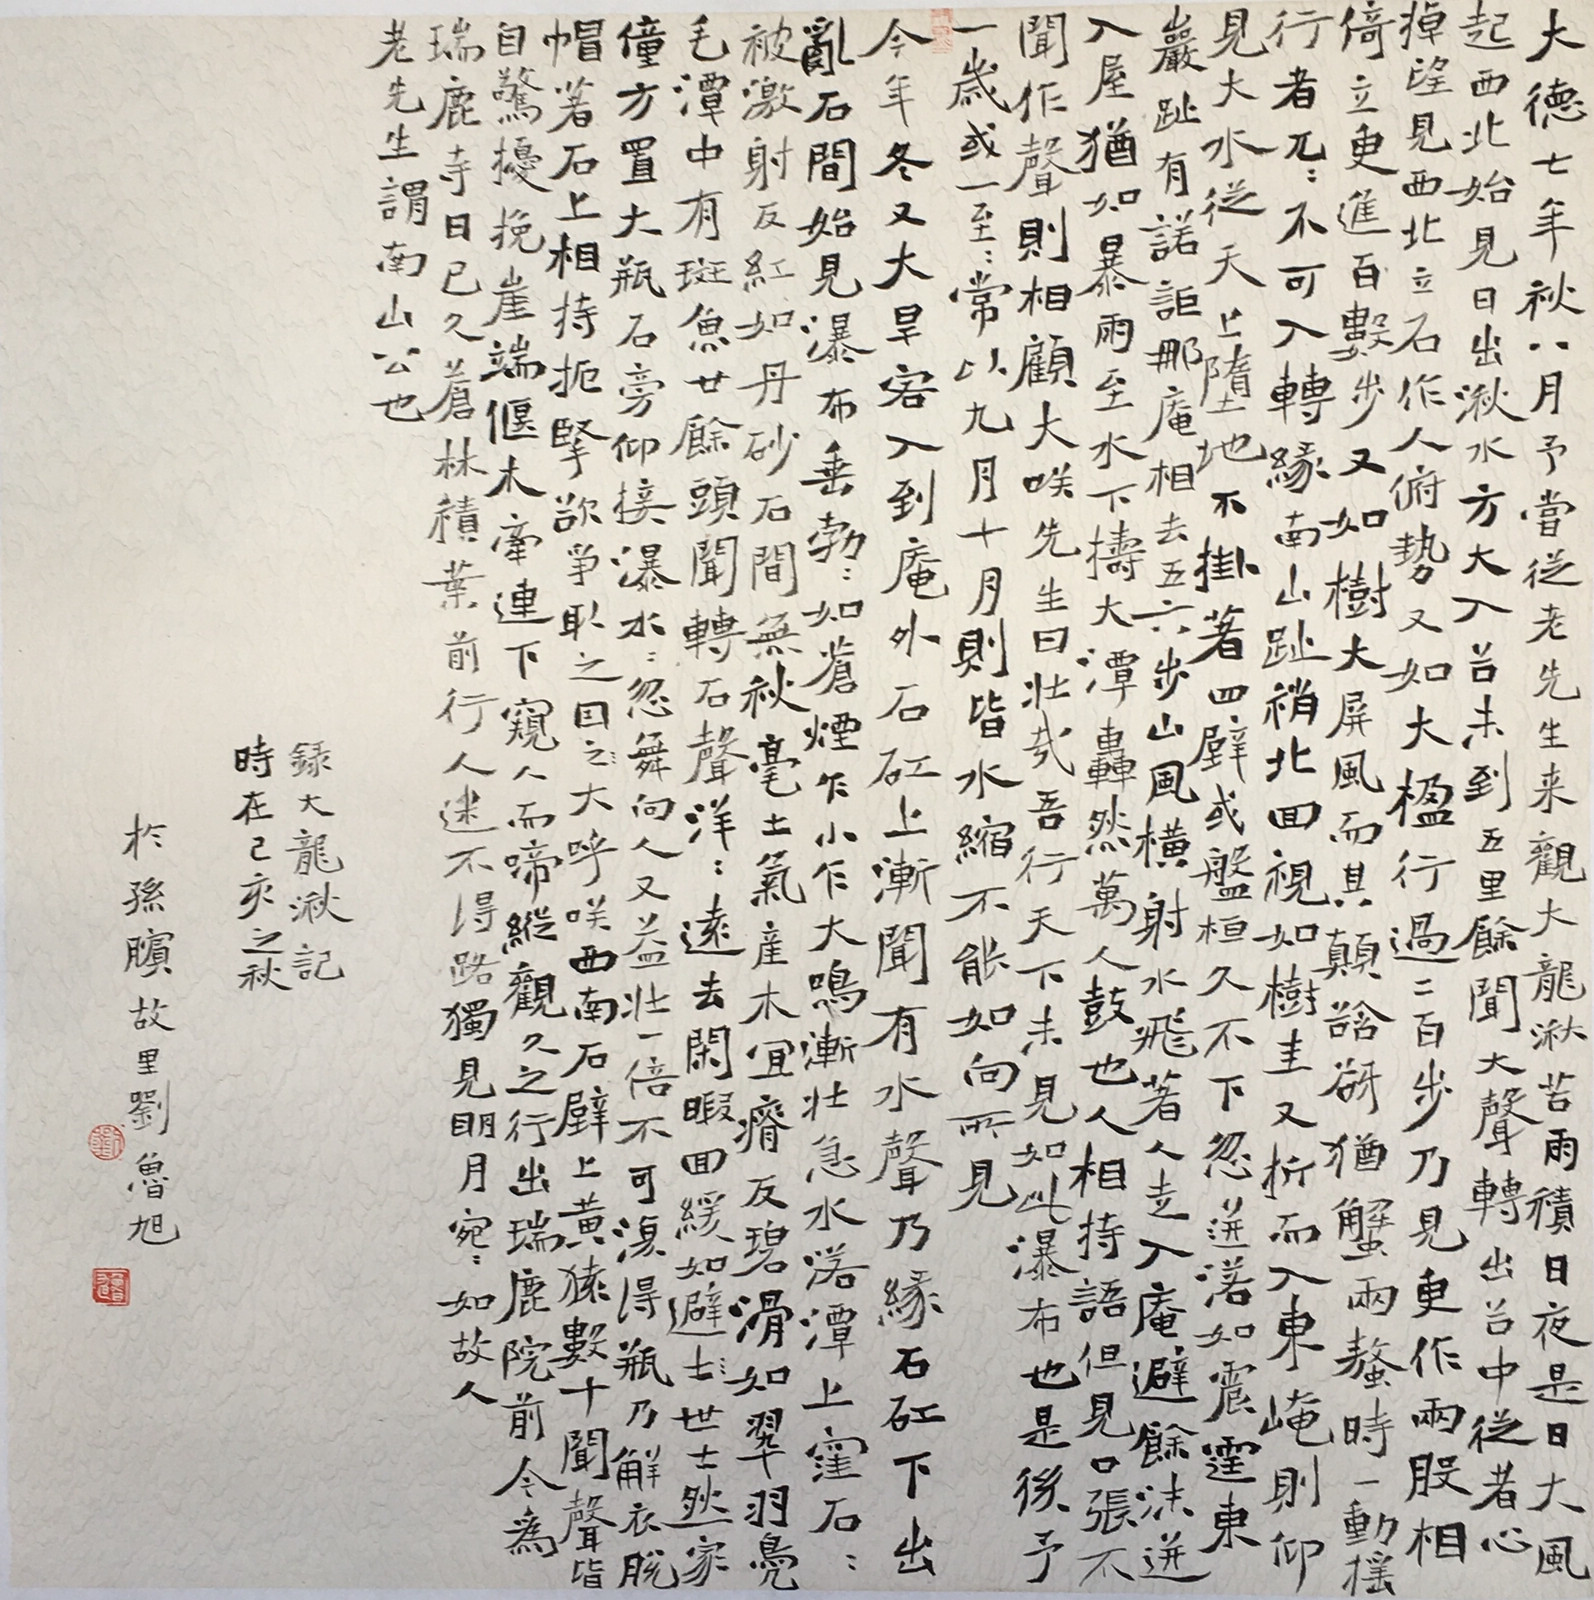 大德七年秋八月予嘗從老先生来觀大龍湫苦雨積日夜是日大風
起西北始見日出湫水方大入谷未到五里餘聞大聲轉出谷中從者心
掉望見西北立石作人俯勢又如大楹行過二百步乃見更作兩股相
倚立更進百數步又如樹大屏風而其顛谽谺猶蟹兩螯時一動揺
行者兀〻不可入轉緣南山趾稍北回視如樹圭又折而入東崦則仰
見大水從天上墮地不掛著四壁或盤桓久不下忽迸落如震霆東
巖趾有諾詎那庵相去五六步山風橫射水飛著人走入庵避餘沫迸
入屋猶如暴雨至水下擣大潭轟然萬人鼓也人相持語但見口張不
聞作聲則相顧大咲先生曰壯哉吾行天下未見如此瀑布也是後予
一歲或一至〻常以九月十月則皆水縮不能如向所見
今年冬又大旱客入到庵外石矼上漸聞有水聲乃緣石矼下出
亂石間始見瀑布垂勃〻如蒼煙乍小乍大鳴漸壯急水落潭上窪石〻
被激射反紅如丹砂石間無秋毫土氣産木宜瘠反碧滑如翠羽鳧
毛潭中有斑魚廿餘頭聞轉石聲洋〻遠去閑暇回緩如避世士然家
僮方置大瓶石旁仰接瀑水〻忽舞向人又益壯一倍不可復得瓶乃解衣脫
帽著石上相持扼掔欲爭取之因之大呼咲西南石壁上黃猿數十聞聲皆
自驚擾挽崖端偃木牽連下窺人而啼縱觀久之行出瑞鹿院前今為
瑞鹿寺日已久蒼林積葉前行人迷不得路獨見明月宛〻如故人
老先生謂南山公也
録大龍湫記
時在己亥之秋
於孫臏故里劉魯旭